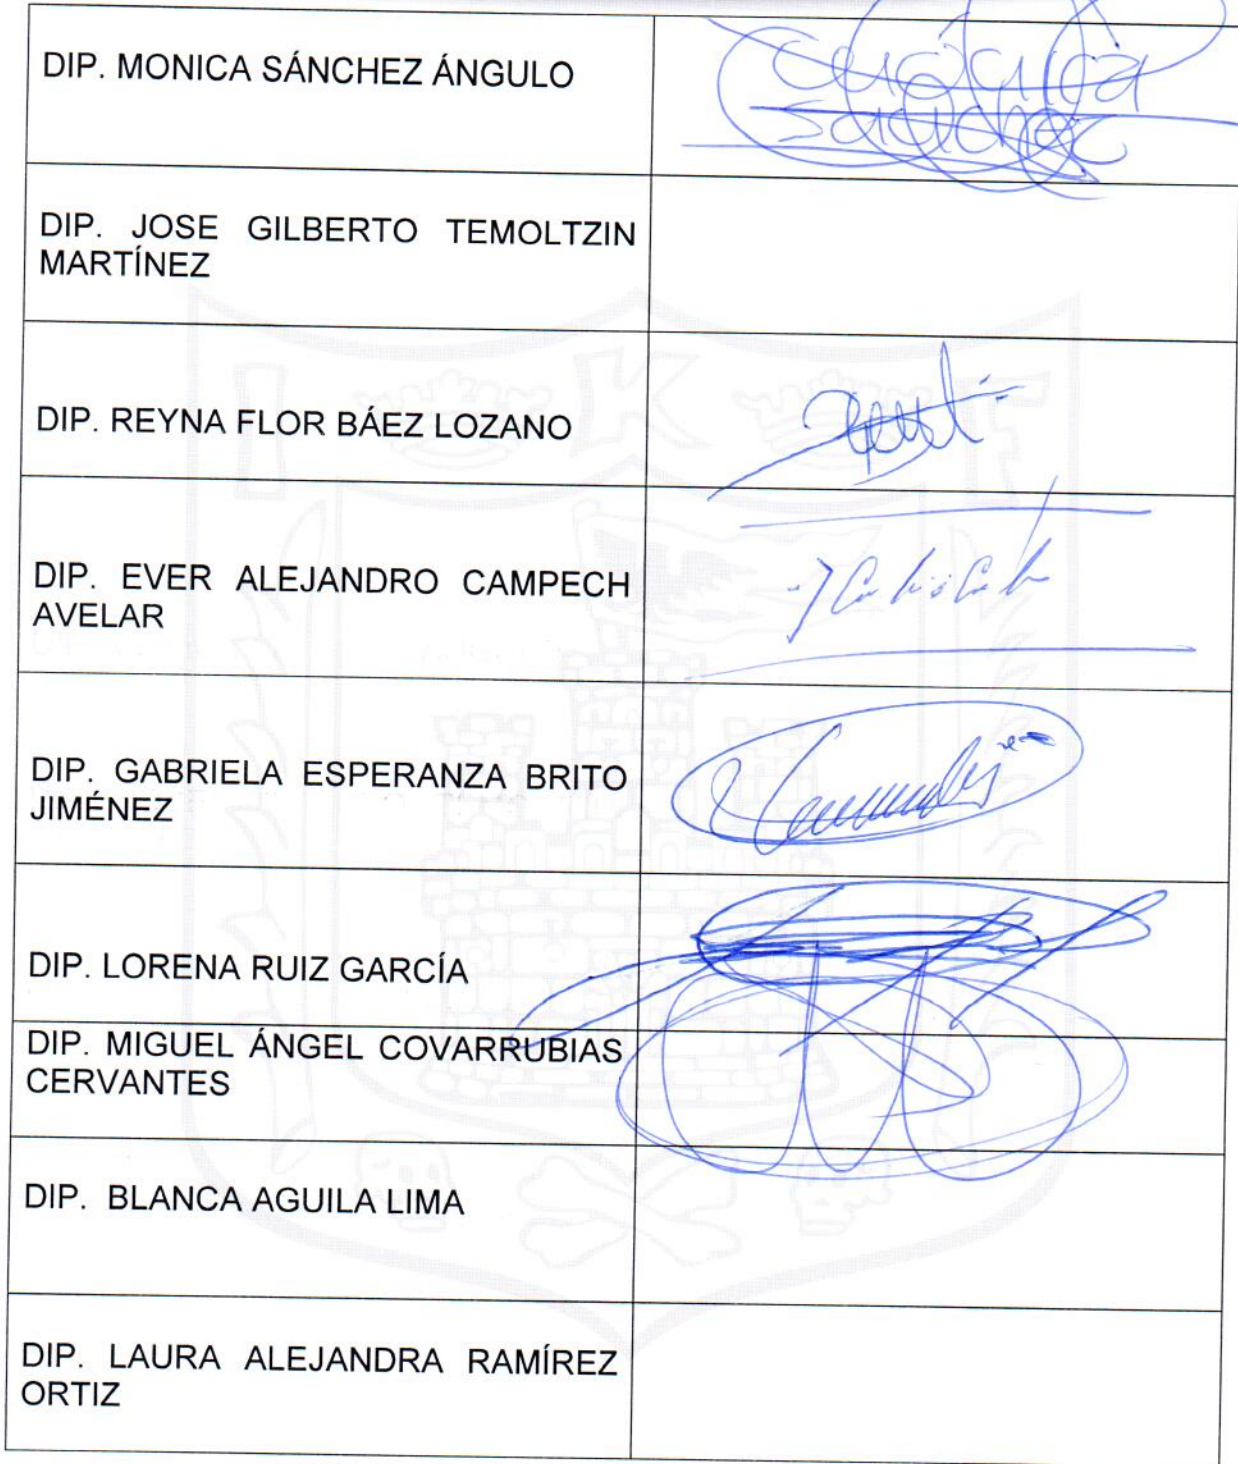 DIP. MONICA SÁNCHEZ ÁNGULO
Sanchez
DIP. JOSE GILBERTO TEMOLTZIN
MARTÍNEZ
I K F
DIP. REYNA FLOR BÁEZ LOZANO
DIP. EVER ALEJANDRO CAMPECH
AVELAR
DIP. GABRIELA ESPERANZA BRITO
JIMÉNEZ
DIP. LORENA RUIZ GARCÍA
DIP. MIGUEL ÁNGEL COVARRUBIAS
CERVANTES
DIP. BLANCA AGUILA LIMA
DIP. LAURA ALEJANDRA RAMÍREZ
ORTIZ